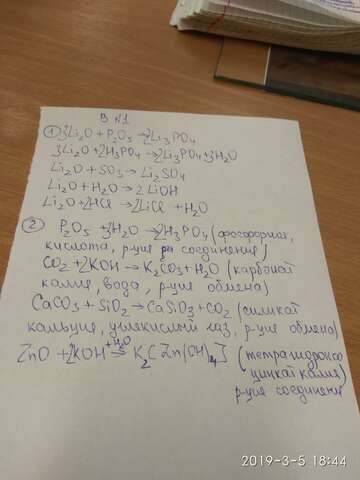 В N1.
① 3Li₂O + P₂O₅ → 2Li₃PO₄
3Li₂O + 2H₃PO₄ → 2Li₃PO₄ + 3H₂O
Li₂O + SO₃ → Li₂SO₄
Li₂O + H₂O → 2LiOH
Li₂O + 2HCl → 2LiCl + H₂O
② P₂O₅ + 3H₂O → 2H₃PO₄ (фосфорная,
кислота, р-ция соединения)
CO₂ + 2KOH → K₂CO₃ + H₂O (карбонат
калия, вода, р-ция обмена)
CaCO₃ + SiO₂ → CaSiO₃ + CO₂ (силикат
кальция, углекислый газ, р-ция обмена)
ZnO + 2KOH +H₂O → K₂[Zn(OH)₄] (тетрагидроксо
цинкат калия)
р-ция соединения
2019-3-5 18:44